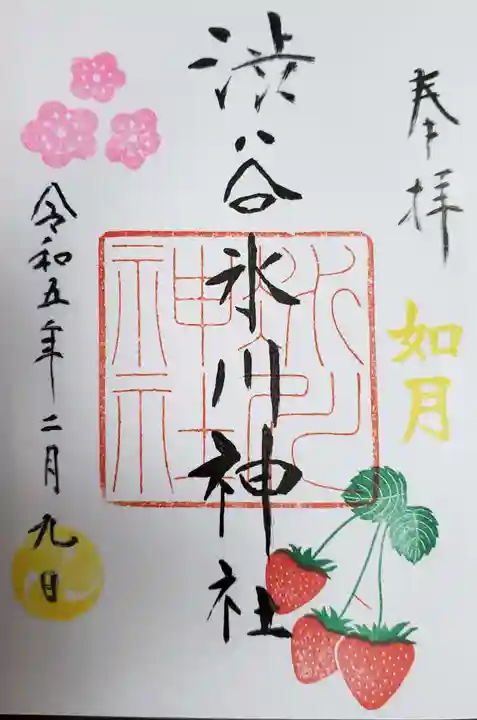 奉拝
如月
渋谷氷川神社
令和五年二月九日